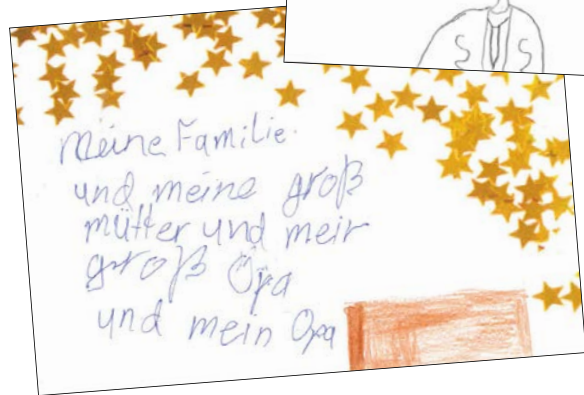 Meine Familie.
und meine groß
mütter und mein
groß Öpa
und mein Opa